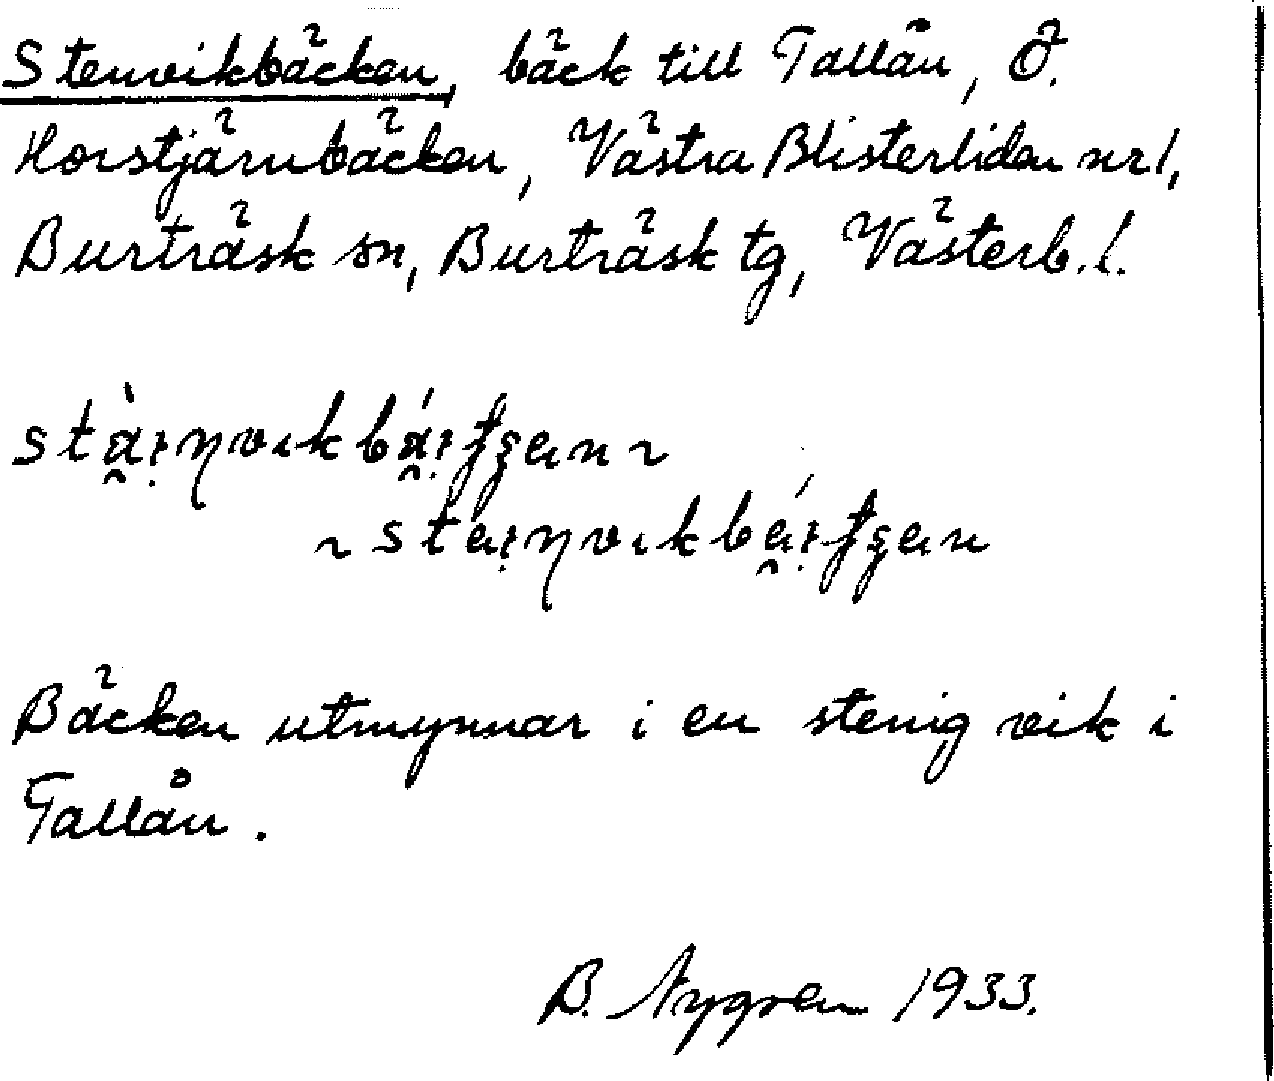 Stenvikbäcken, bäck till Tallån, Ö.
Horstjärnbäcken, Västra Blisterliden nr 1,
Burträsk sn, Burträsk tg, Västerb. l.
Bäcken utmynnar i en stenig vik i
Tallån.
B. Nygren 1933.